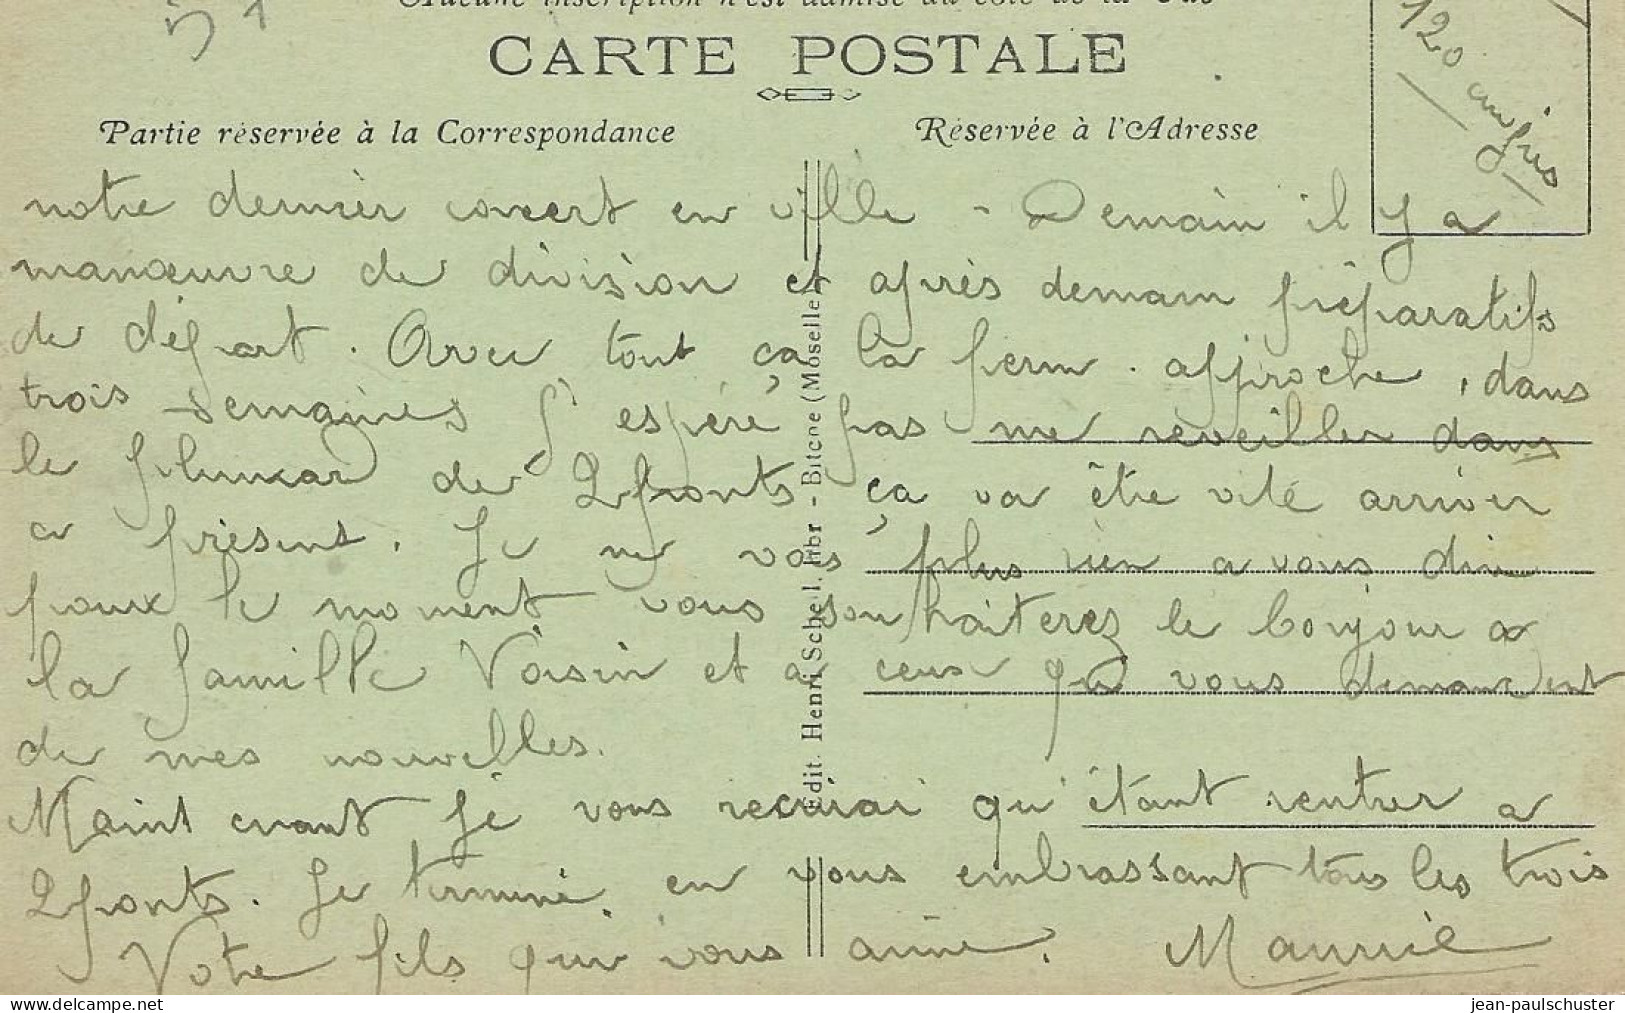 Aucune inscription n'est admise du côté de la Vue
CARTE POSTALE
Partie réservée à la Correspondance
Réservée à l'Adresse
120
notre dernier concert en ville - Demain il y a
manœuvre de division et après demain préparatifs
de départ. Avec tout ça la perm. approche, dans
trois semaines j'espère pas me réveiller dans
le plumard de 2ponts ça va être vite arriver
a présent. Je ne vois plus rien a vous dire
pour le moment vous souhaiterez le bonjour a
la famille Voisin et a ceux qui vous demandent
de mes nouvelles.
Maintenant je vous recrirai qu'étant rentrer a
2ponts. Je termine en vous embrassant tous les trois
Votre fils qui vous aime. Maurice
Edit. Henri Schell, libr - Bitche (Moselle)
www.delcampe.net
jean-paulschuster